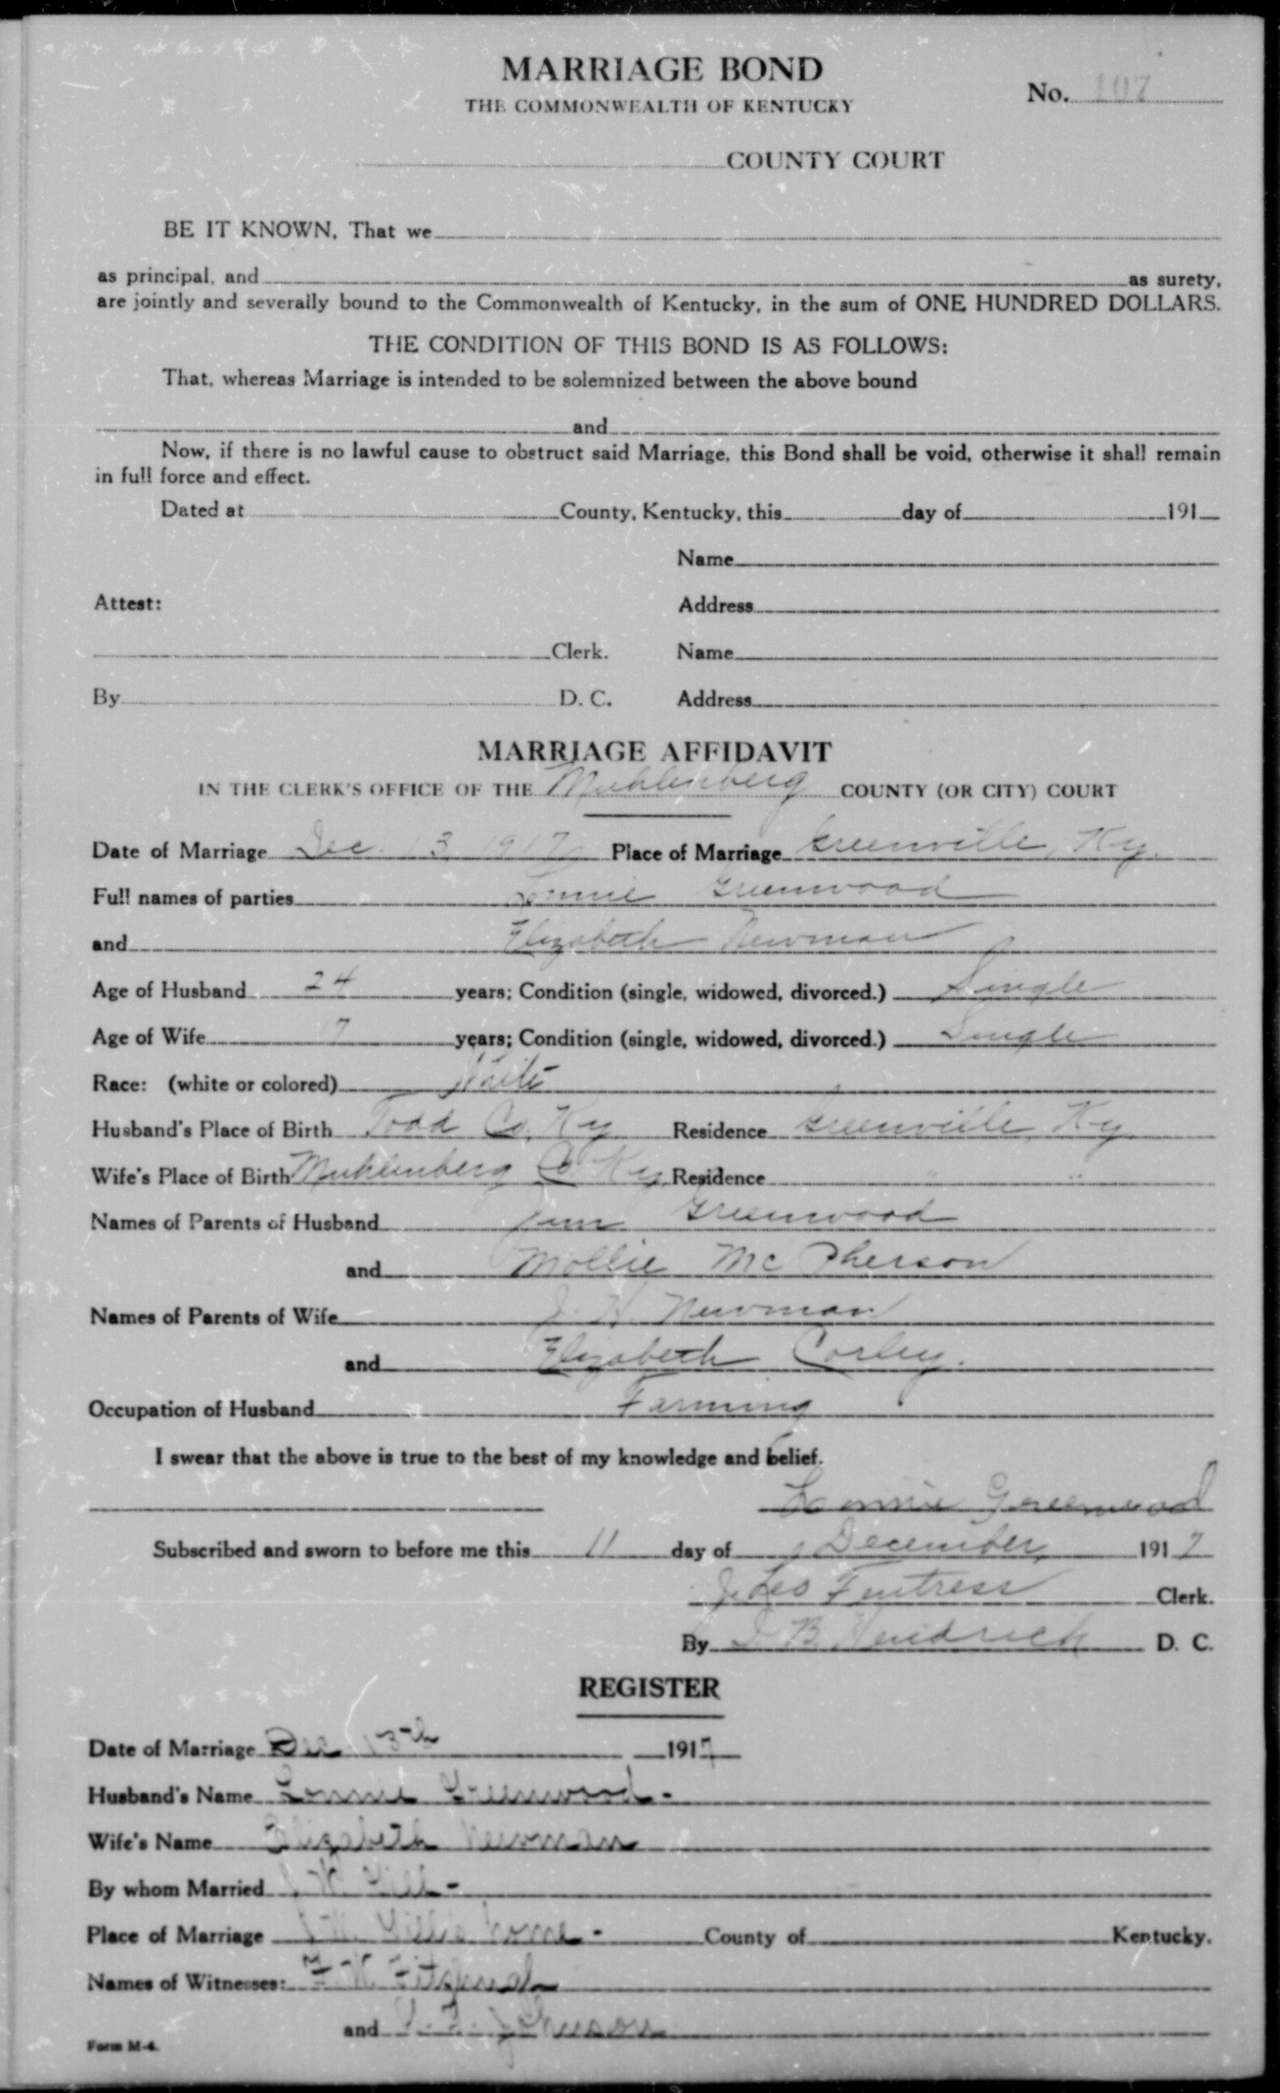 MARRIAGE BOND
THE COMMONWEALTH OF KENTUCKY
No. 107
COUNTY COURT
BE IT KNOWN, That we
as principal, and as surety,
are jointly and severally bound to the Commonwealth of Kentucky, in the sum of ONE HUNDRED DOLLARS.
THE CONDITION OF THIS BOND IS AS FOLLOWS:
That, whereas Marriage is intended to be solemnized between the above bound
and
Now, if there is no lawful cause to obstruct said Marriage, this Bond shall be void, otherwise it shall remain
in full force and effect.
Dated at County, Kentucky, this day of 191
Name
Attest: Address
Clerk. Name
By D. C. Address
MARRIAGE AFFIDAVIT
IN THE CLERK'S OFFICE OF THE Muhlenberg COUNTY (OR CITY) COURT
Date of Marriage Dec. 13, 1917 Place of Marriage Greenville, Ky.
Full names of parties Lonnie Greenwood
and Elizabeth Newman
Age of Husband 24 years; Condition (single, widowed, divorced.) Single
Age of Wife years; Condition (single, widowed, divorced.) Single
Race: (white or colored) White
Husband's Place of Birth Todd Co. Ky Residence Greenville, Ky
Wife's Place of Birth Muhlenberg Co Ky. Residence " "
Names of Parents of Husband Jim Greenwood
and Mollie McPherson
Names of Parents of Wife J. H. Newman
and Elizabeth Corley.
Occupation of Husband Farming
I swear that the above is true to the best of my knowledge and belief.
Lonnie Greenwood
Subscribed and sworn to before me this 11 day of December, 1917
J. Leo Fentress Clerk.
By Hendrick D. C.
REGISTER
Date of Marriage Dec 13th 1917
Husband's Name Lonnie Greenwood-
Wife's Name Elizabeth Newman
By whom Married Gill-
Place of Marriage home- County of Kentucky.
Names of Witnesses: F. W. 
and Johnson
Form M-4.